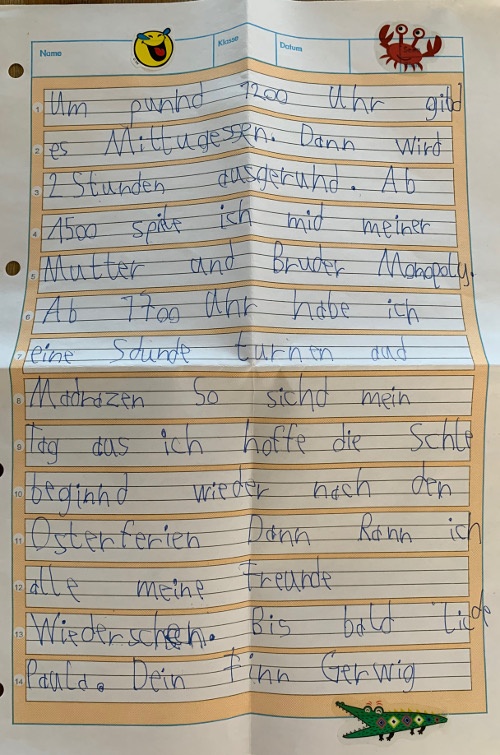 Name Klasse Datum
1 Um punhd 1200 Uhr gibd
2 es Mittugessen. Dann wird
3 2 Stunden ausgeruhd. Ab
4 1500 spile ich mid meiner
5 Mutter und Bruder Monopoly.
6 Ab 1700 Uhr habe ich
7 eine Sdunde turnen aud
8 Madrazen So sichd mein
9 Tag aus ich hoffe die Schle
10 beginnd wieder nach den
11 Osterferien Dann kann ich
12 alle meine Freunde
13 Wiedersehen. Bis bald liede
14 Paula. Dein Finn Gerwig